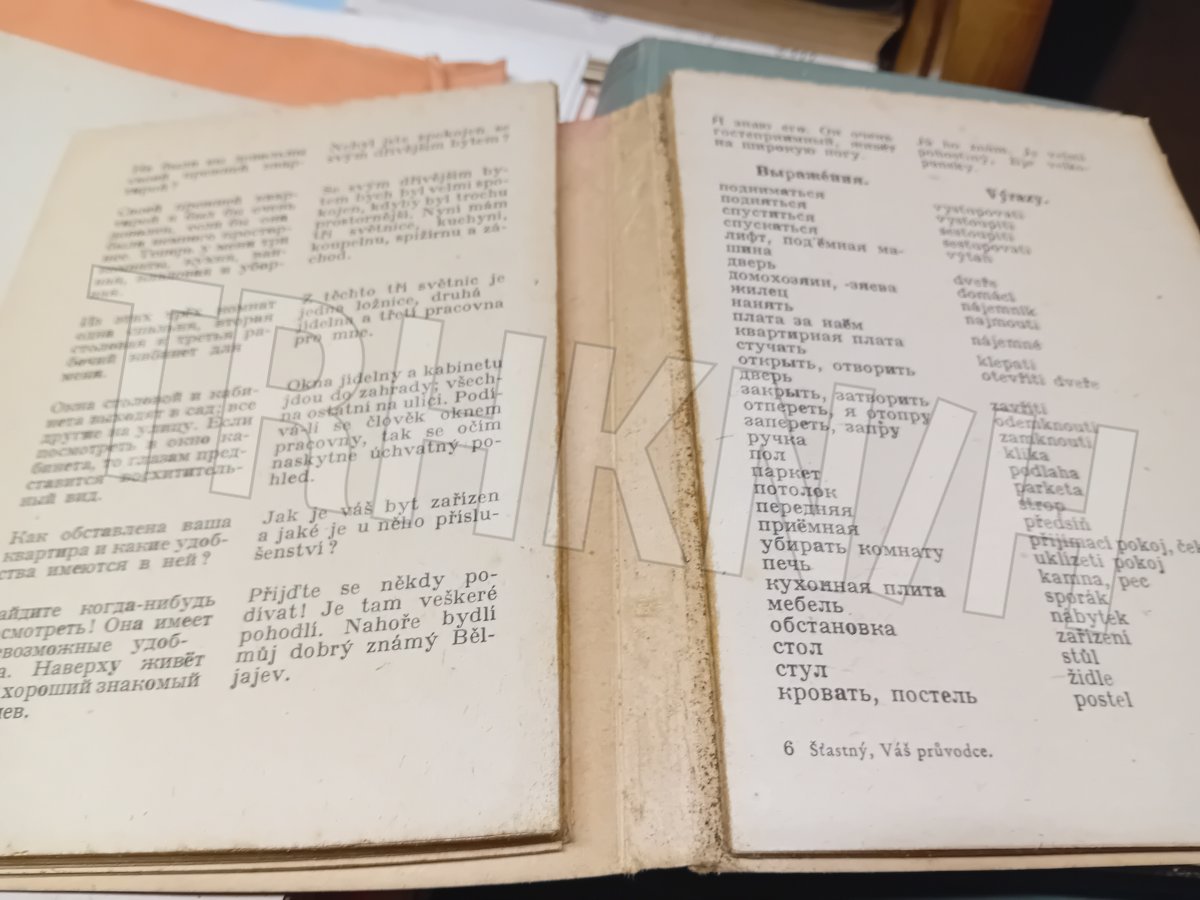 Nebyl jste spokojen se
svým dřívějším bytem?
Se svým dřívějším by-
tem bych byl velmi spo-
kojen, kdyby byl trochu
prostornější. Nyní mám
tři světnice, kuchyni,
koupelnu, spižírnu a zá-
chod.
Из этих трёх комнат
одна спальня, вторая
столовая и третья ра-
бочий кабинет для
меня.
Z těchto tří světnic je
jedna ložnice, druhá
jídelna a třetí pracovna
pro mne.
Окна столовой и каби-
нета выходят в сад; все
другие на улицу. Если
посмотреть в окно ка-
бинета, то глазам пред-
ставится восхититель-
ный вид.
Okna jídelny a kabinetu
jdou do zahrady; všech-
na ostatní na ulici. Podí-
vá-li se člověk oknem
pracovny, tak se očím
naskytne úchvatný po-
hled.
Как обставлена ваша
квартира и какие удоб-
ства имеются в ней?
Jak je váš byt zařízen
a jaké je u něho příslu-
šenství?
айдите когда-нибудь
осмотреть! Она имеет
евозможные удоб-
а. Наверху живёт
хороший знакомый
яев.
Přijďte se někdy po-
dívat! Je tam veškeré
pohodlí. Nahoře bydlí
můj dobrý známý Běl-
jajev.
Я знаю его. Он очень
гостеприимный, живёт
на широкую ногу.
Já ho znám. Je velmi
pohostinný, žije velko-
pansky.
Выраже́ния.
Výrazy.
подниматься vystupovati
подняться vystoupiti
спуститься sestoupiti
спускаться sestupovati
лифт, подъёмная ма- výtah
шина
дверь dveře
домохозяин, -яева domácí
жилец nájemník
нанять najmouti
плата за наём nájemné
квартирная плата
стучать klepati
открыть, отворить otevříti dveře
дверь
закрыть, затворить zavříti
отпереть, я отопру odemknouti
запереть, запру zamknouti
ручка klika
пол podlaha
паркет parketa
потолок strop
передняя předsíň
приёмная přijímací pokoj, ček
убирать комнату uklízeti pokoj
печь kamna, pec
кухонная плита sporák
мебель nábytek
обстановка zařízení
стол stůl
стул židle
кровать, постель postel
6 Šťastný, Váš průvodce.
TRHKNIH